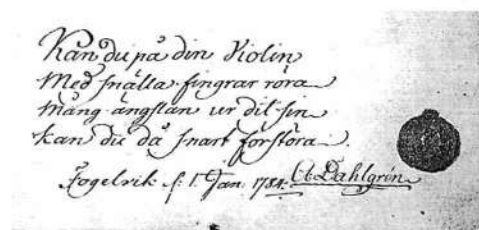 Kan du på din Violin
Med snälla fingrar röra
Mång ängslan ur dit sin
kan du då snart förstöra.
Fogelvik d: 1. Jan: 1784. CADahlgrin